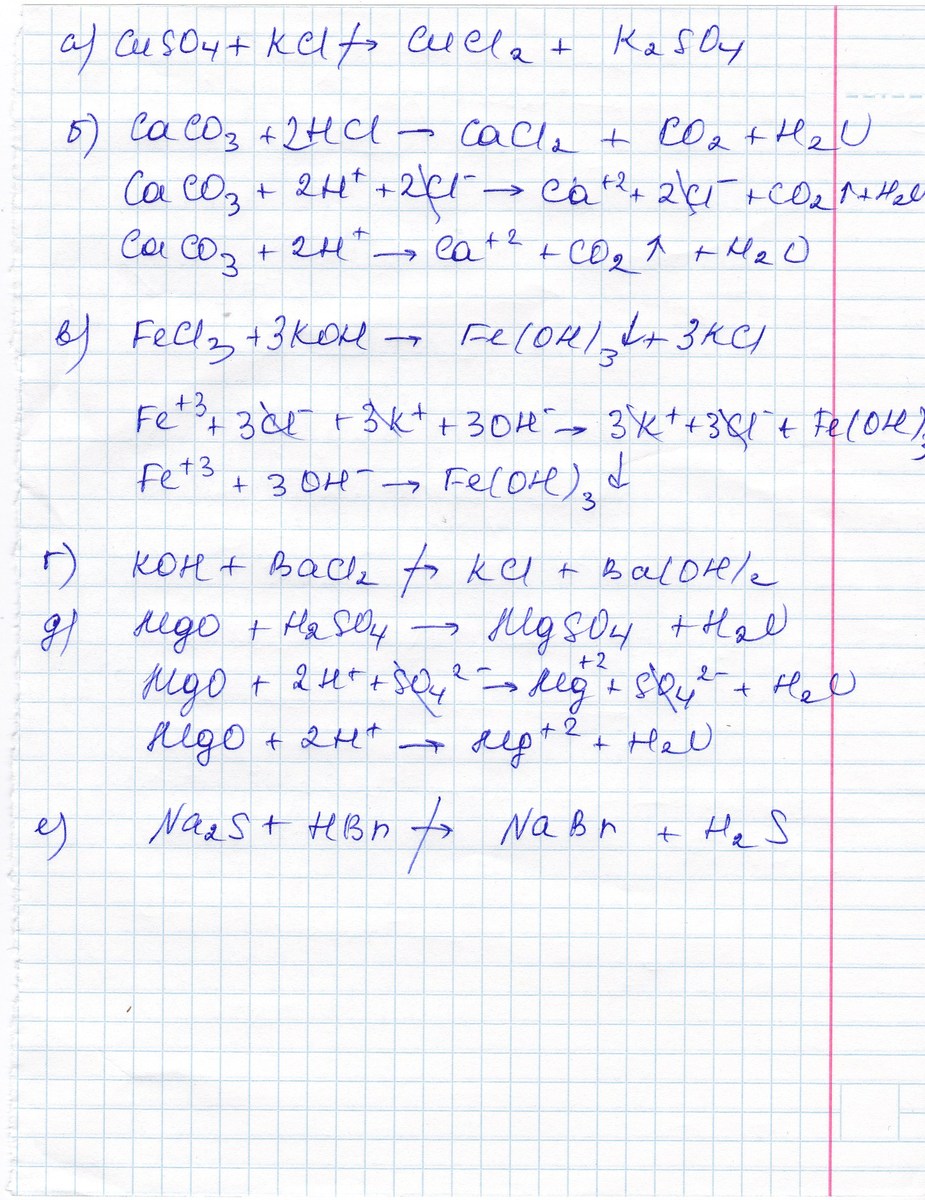 а) CuSO₄ + KCl ↛ CuCl₂ + K₂SO₄
б) CaCO₃ + 2HCl → CaCl₂ + CO₂ + H₂O
CaCO₃ + 2H⁺ + 2Cl⁻ → Ca⁺² + 2Cl⁻ + CO₂↑ + H₂O
CaCO₃ + 2H⁺ → Ca⁺² + CO₂↑ + H₂O
в) FeCl₃ + 3KOH → Fe(OH)₃↓ + 3KCl
Fe⁺³ + 3Cl⁻ + 3K⁺ + 3OH⁻ → 3K⁺ + 3Cl⁻ + Fe(OH)₃↓
Fe⁺³ + 3OH⁻ → Fe(OH)₃↓
г) KOH + BaCl₂ ↛ KCl + Ba(OH)₂
д) MgO + H₂SO₄ → MgSO₄ + H₂O
MgO + 2H⁺ + SO₄²⁻ → Mg⁺² + SO₄²⁻ + H₂O
MgO + 2H⁺ → Mg⁺² + H₂O
е) Na₂S + HBr ↛ NaBr + H₂S